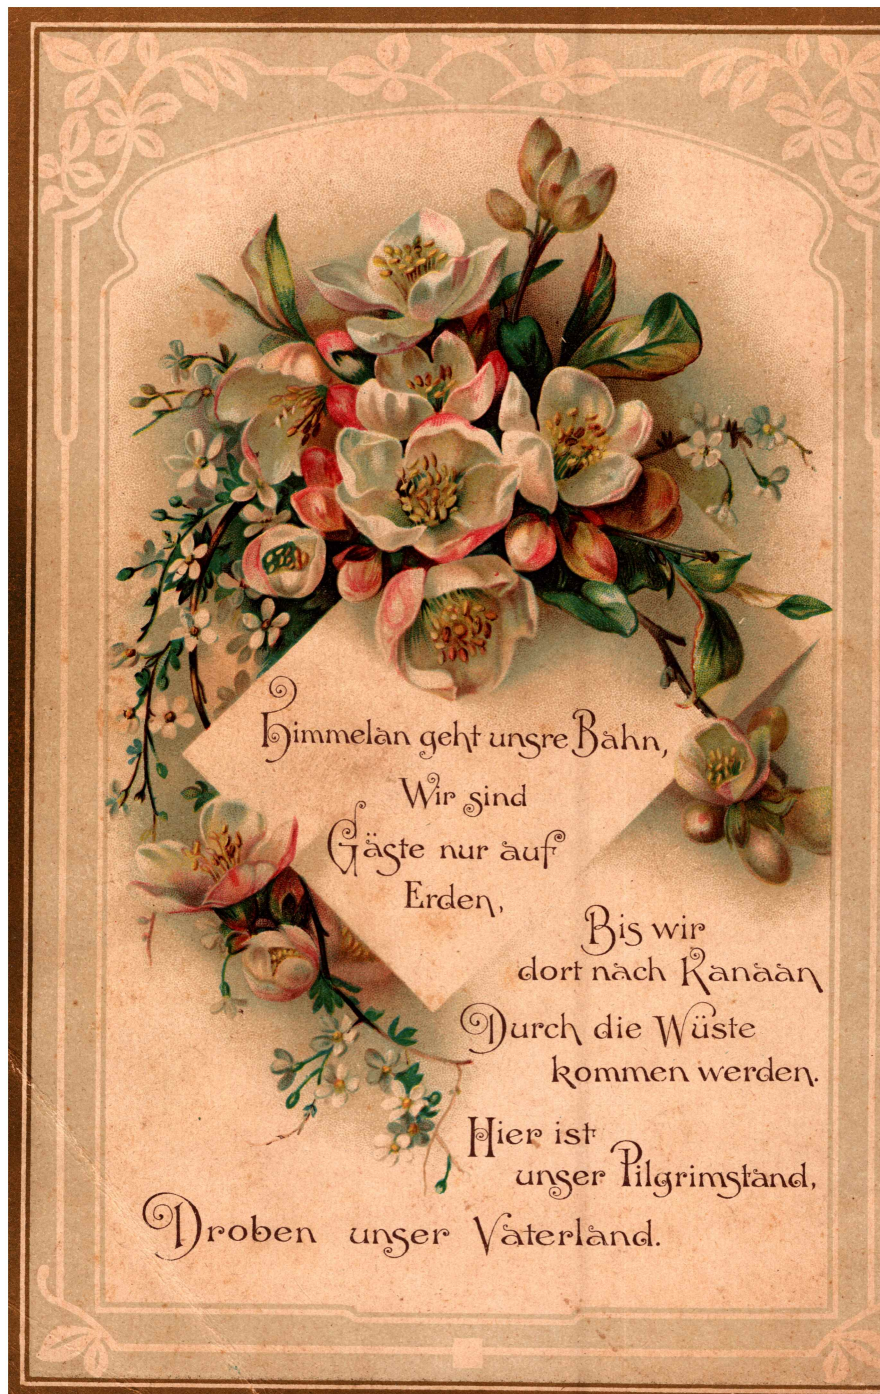 Himmelan geht unsre Bahn,
Wir sind
Gäste nur auf
Erden,
Bis wir
dort nach Kanaan
Durch die Wüste
kommen werden.
Hier ist
unser Pilgrimstand,
Droben unser Vaterland.